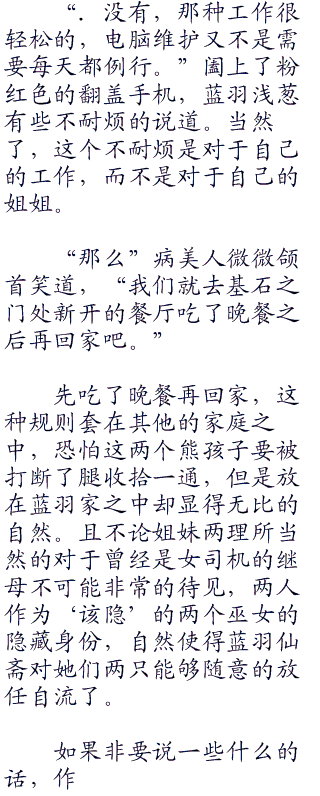 “．没有，那种工作很
轻松的，电脑维护又不是需
要每天都例行。”阖上了粉
红色的翻盖手机，蓝羽浅葱
有些不耐烦的说道。当然
了，这个不耐烦是对于自己
的工作，而不是对于自己的
姐姐。
“那么”病美人微微颌
首笑道，“我们就去基石之
门处新开的餐厅吃了晚餐之
后再回家吧。”
先吃了晚餐再回家，这
种规则套在其他的家庭之
中，恐怕这两个熊孩子要被
打断了腿收拾一通，但是放
在蓝羽家之中却显得无比的
自然。且不论姐妹两理所当
然的对于曾经是女司机的继
母不可能非常的待见，两人
作为‘该隐’的两个巫女的
隐藏身份，自然使得蓝羽仙
斋对她们两只能够随意的放
任自流了。
如果非要说一些什么的
话，作